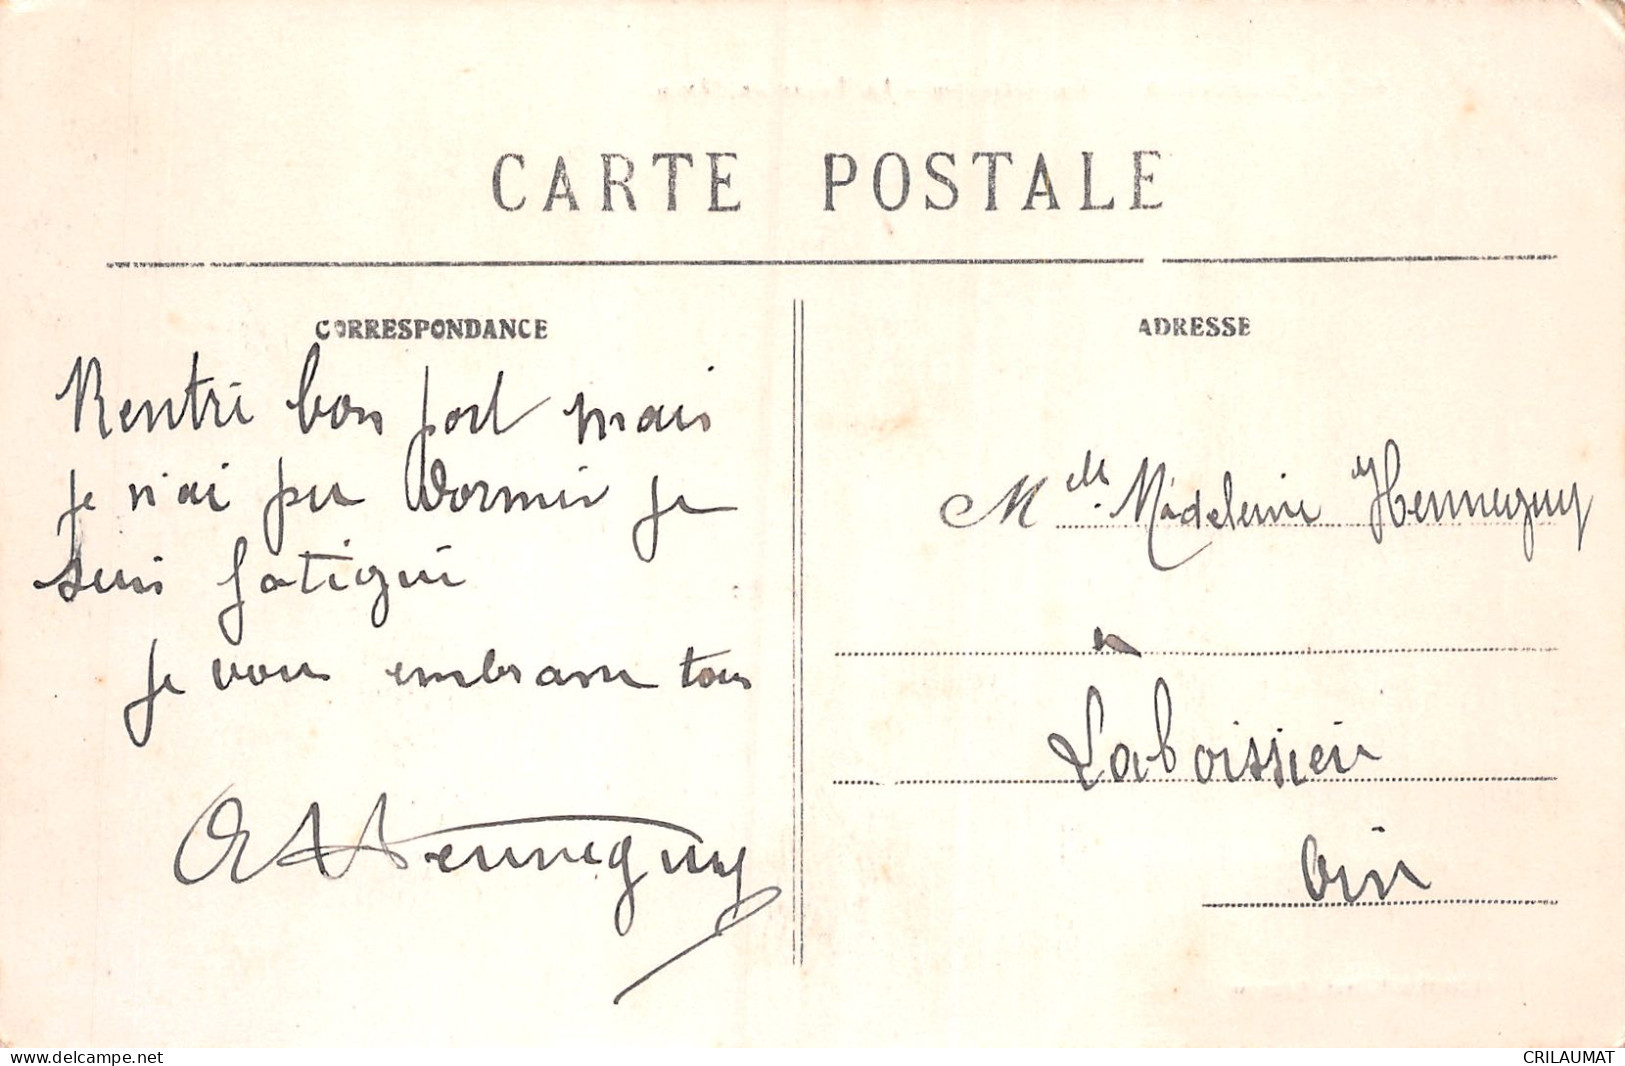 CARTE POSTALE
CORRESPONDANCE
Rentré bon port mais
je n'ai pu dormir je
suis fatigué
je vous embrasse tous
Henneguy
ADRESSE
Melle Madeleine Henneguy
à
Laboissière
Oise
delcampe.net
CRILAUMAT